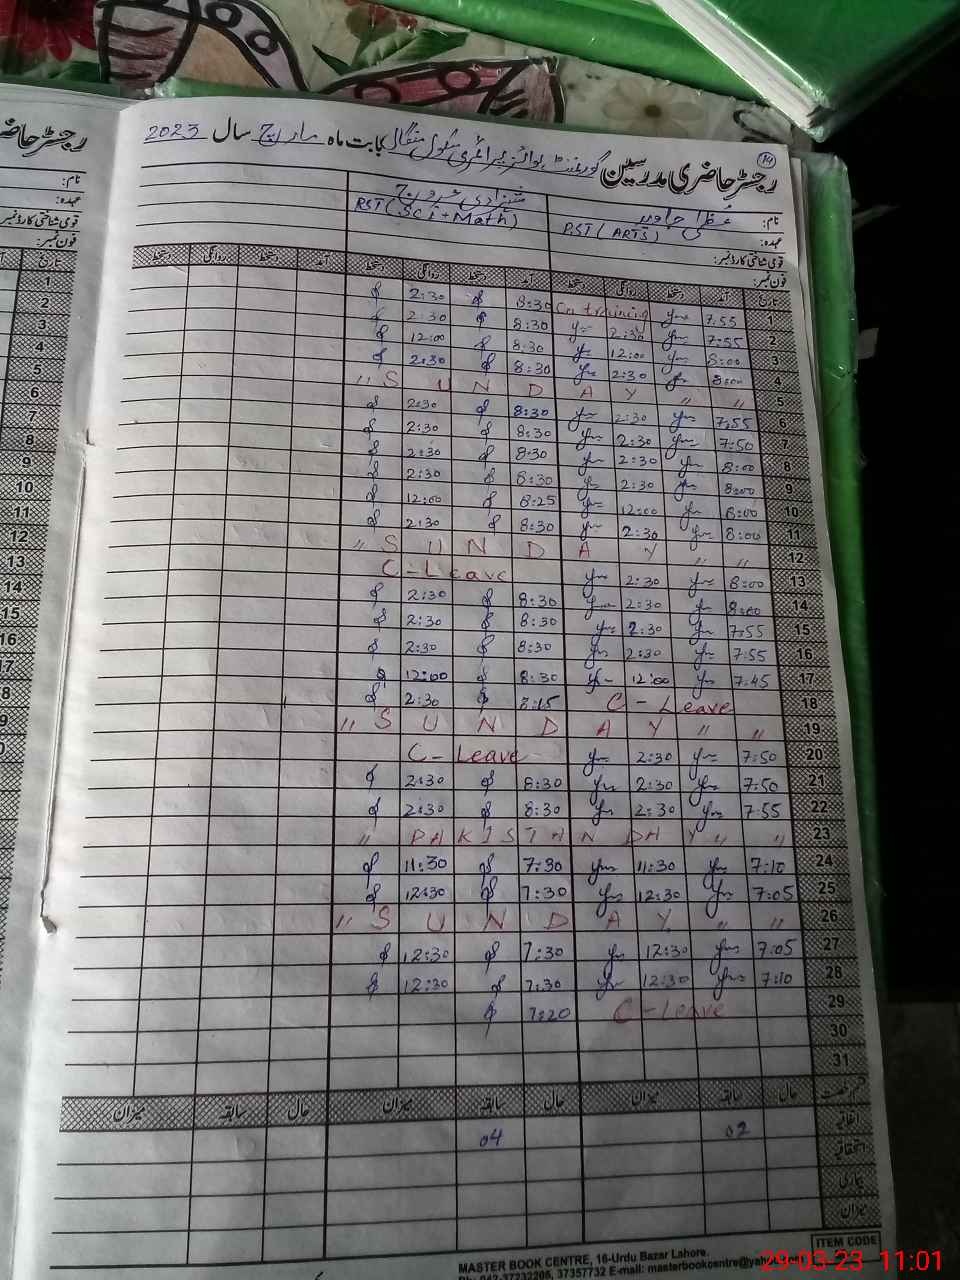 14
رجسٹر حاضری مدرسین گورنمنٹ بوائز پرائمری سکول منگال بابت ماہ مارچ سال 2023
نام: عظمیٰ جاوید شہزادی عروج
عہدہ: PST (ARTS) RST (Sci + Math)
قومی شناختی کارڈ نمبر:
فون نمبر:
تاریخ آمد دستخط روانگی دستخط آمد دستخط روانگی دستخط آمد دستخط روانگی دستخط
1 7:55 On training 8:30 2:30
2 7:55 2:30 8:30 2:30
3 8:00 12:00 8:30 12:00
4 8:00 2:30 8:30 2:30
5 " S U N D A Y " "
6 7:55 2:30 8:30 2:30
7 7:50 2:30 8:30 2:30
8 8:00 2:30 8:30 2:30
9 8:00 2:30 8:30 2:30
10 8:00 12:00 8:25 12:00
11 8:00 2:30 8:30 2:30
12 " S U N D A Y " "
13 8:00 2:30 C-Leave
14 8:00 2:30 8:30 2:30
15 7:55 2:30 8:30 2:30
16 7:55 2:30 8:30 2:30
17 7:45 12:00 8:30 12:00
18 C - Leave 8:15 2:30
19 " S U N D A Y " "
20 7:50 2:30 C-Leave
21 7:50 2:30 8:30 2:30
22 7:55 2:30 8:30 2:30
23 " PAKISTAN DAY " "
24 7:10 11:30 7:30 11:30
25 7:05 12:30 7:30 12:30
26 " S U N D A Y " "
27 7:05 12:30 7:30 12:30
28 7:10 12:30 7:30 12:30
29 C-Leave 7:20
30
31
قسم رخصت حال سابقہ میزان حال سابقہ میزان حال سابقہ میزان
اتفاقیہ 02 04
استحقاقیہ
بیماری
میزان
ITEM CODE
MASTER BOOK CENTRE, 16-Urdu Bazar Lahore.
Ph: 042-37232205, 37357732 E-mail: masterbookcentre@yah
29-03-23 11:01
رجسٹر حاضر
نام:
عہدہ:
قومی شناختی کارڈ نمبر
فون نمبر:
تاریخ
1
2
3
4
5
6
7
8
9
10
11
12
13
14
15
16
17